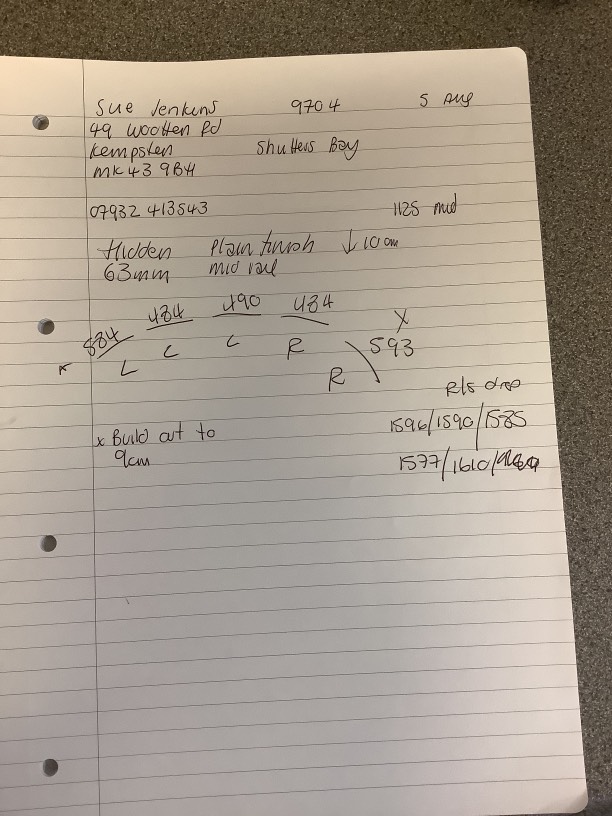 Sue Jenkins 9704 5 Aug
49 Wootten Rd
Kempsten Shutters Bay
MK43 9BH
07932 413543 1125 mid
Hidden Plain finish ↓ 10cm
63mm mid rail
884 484 490 484 x
L L L R 593
R
R/s drop
x Build out to 1596/1590/1585
9cm 1577/1610/